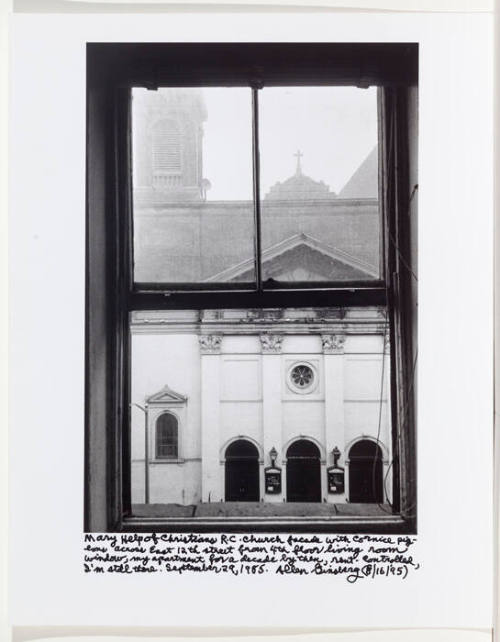 Mary Help of Christians R.C. Church facade with Cornice pig-
eons across East 12th street from 4th floor living room
window, my apartment for a decade by then, rent-controlled,
I'm still there. September 29, 1985. Allen Ginsberg (8/16/95)